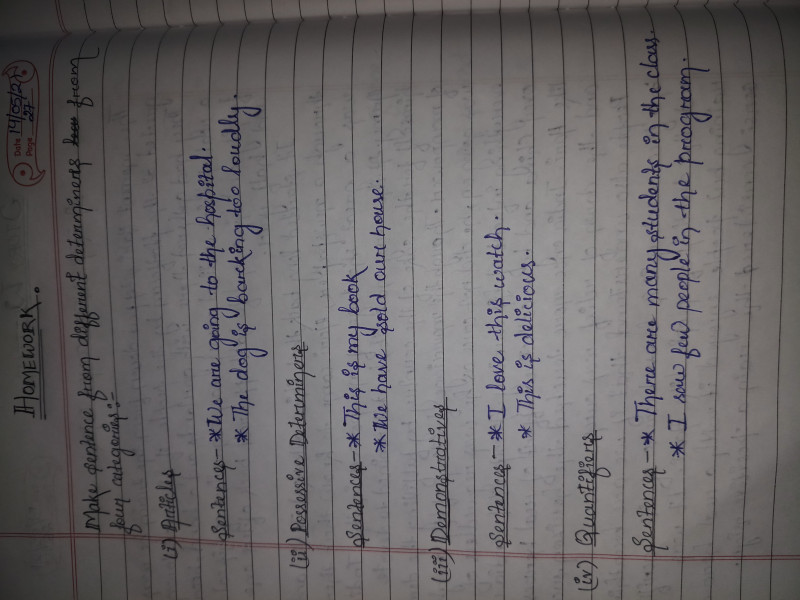 HOMEWORK.
Date 19/05/21
Page 27
Make sentence from different determiners from
four categories:-
(i) Articles
Sentences-*We are going to the hospital.
* The dog is barking too loudly.
(ii) Possessive Determiners
Sentences-* This is my book
* We have sold our house.
(iii) Demonstratives
Sentences-* I love this watch.
* This is delicious.
(iv) Quantifiers
Sentences-* There are many students in the class.
* I saw few people in the program.